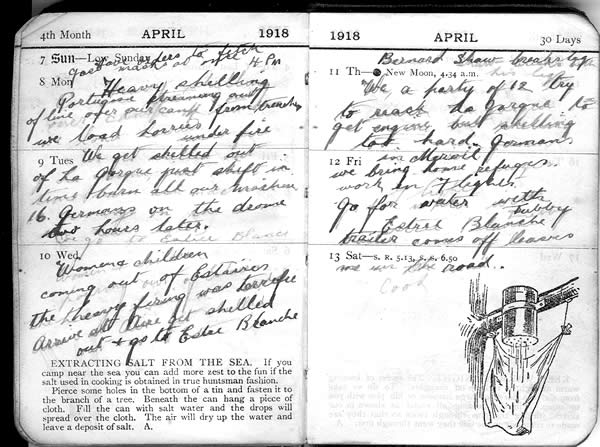 4th Month APRIL 1918
7 Sun—Low Sunday
have orders to fetch
at once 4 Pm
8 Mon Heavy shelling
Portugese streaming out
of line over our camp from trenches
we load lorries under fire
9 Tues We get shelled out
of La Gorgue just shift in
time burn all our
16. Germans on the drome
two hours later.
go to Estree Blanche
10 Wed
Women & children
coming out of Estaires
the heavy firing was terrific
Arrive at Aire get shelled
out & go to Estre Blanche
EXTRACTING SALT FROM THE SEA. If you
camp near the sea you can add more zest to the fun if the
salt used in cooking is obtained in true huntsman fashion.
Pierce some holes in the bottom of a tin and fasten it to
the branch of a tree. Beneath the can hang a piece of
cloth. Fill the can with salt water and the drops will
spread over the cloth. The air will dry up the water and
leave a deposit of salt. A.
1918 APRIL 30 Days
Bernard Shaw breaks
his
11 Th—● New Moon, 4.34 a.m.
We a party of 12 try
to reach La Gorgue to
get engine but shelling
too hard. Germans
in Mervil
12 Fri
we bring home refugees.
work in Flights
Go for water with
Estree Blanche bubby
trailer comes off leaves
13 Sat—S. R. 5.13, S. S. 6.50
me in the road.
Cook